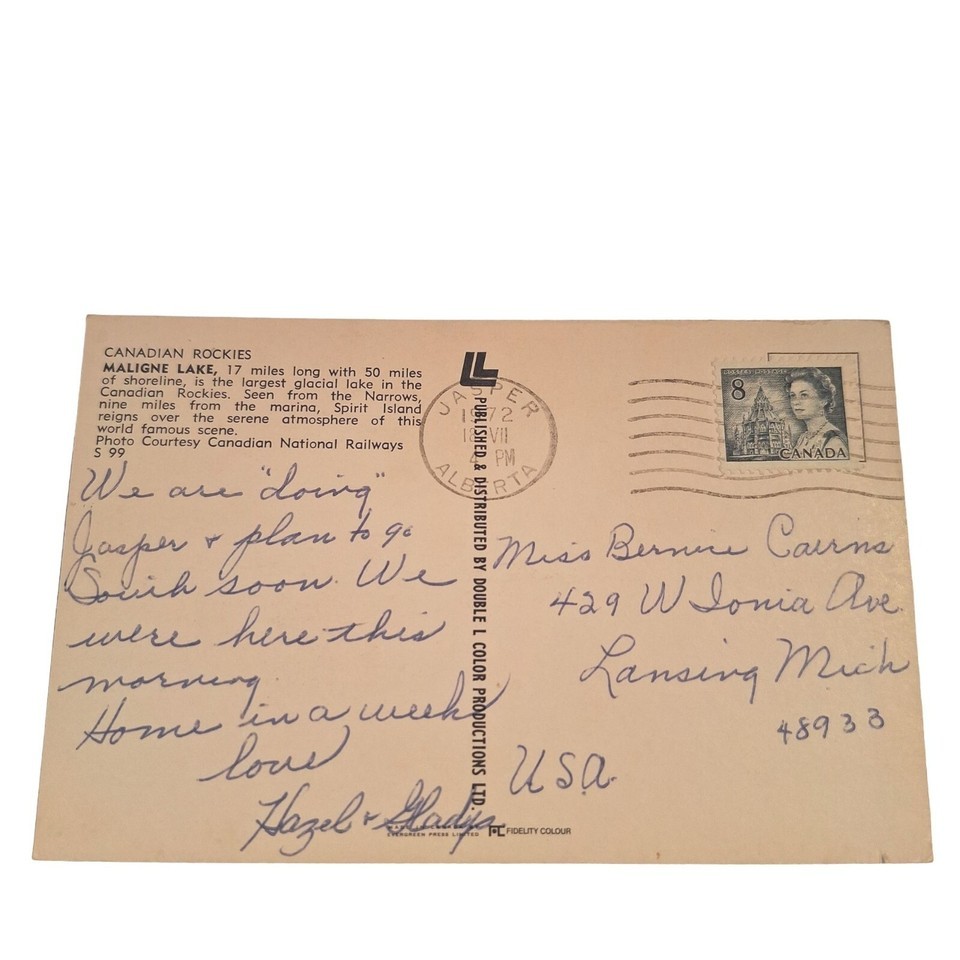 CANADIAN ROCKIES
MALIGNE LAKE, 17 miles long with 50 miles
of shoreline, is the largest glacial lake in the
Canadian Rockies. Seen from the Narrows,
nine miles from the marina, Spirit Island
reigns over the serene atmosphere of this
world famous scene.
Photo Courtesy Canadian National Railways
S 99
We are "doing"
Jasper + plan to go
South soon. We
were here this
morning.
Home in a week
love
Hazel + Gladys
EVERGREEN PRESS LIMITED
FIDELITY COLOUR
LL
PUBLISHED & DISTRIBUTED BY DOUBLE L COLOR PRODUCTIONS LTD.
JASPER
1972
18 VII
4 PM
ALBERTA
POSTES POSTAGE
8
CANADA
Miss Bernice Cairns
429 W Ionia Ave.
Lansing Mich
48933
USA.